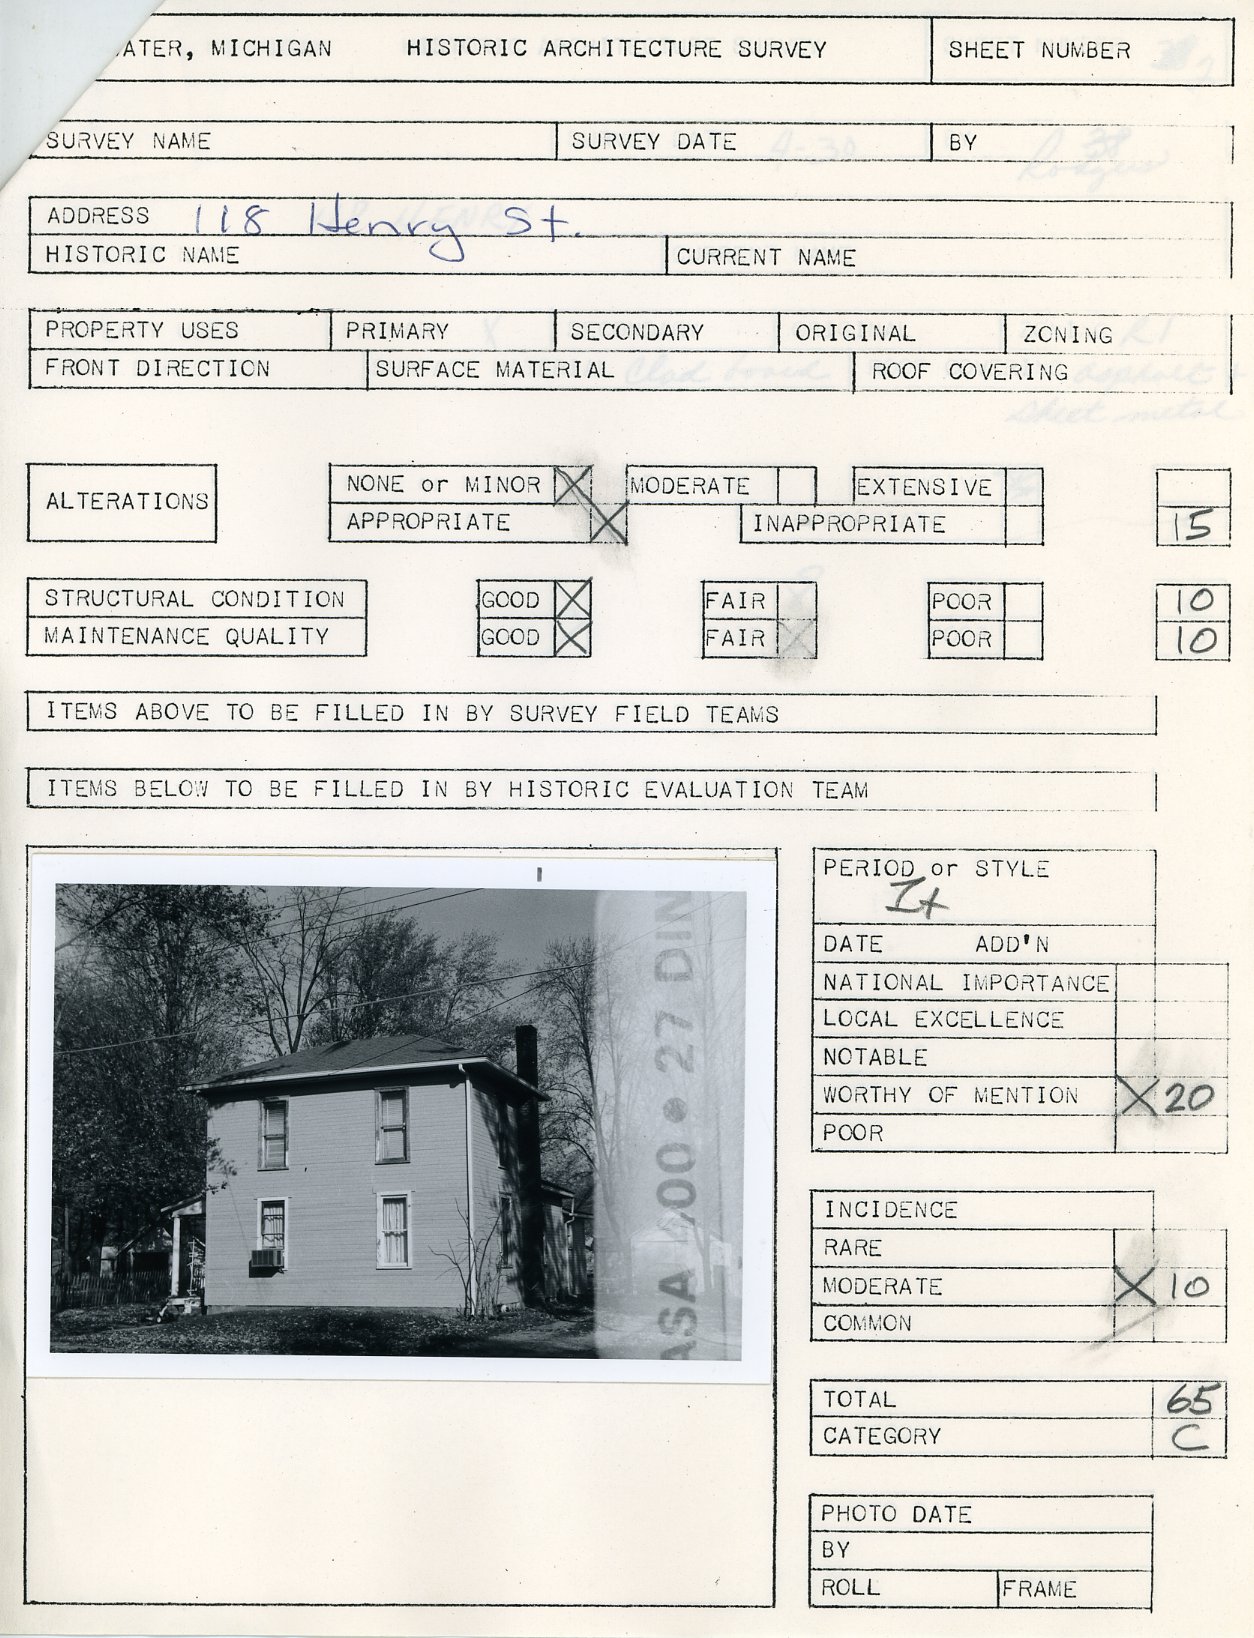 ATER, MICHIGAN HISTORIC ARCHITECTURE SURVEY SHEET NUMBER
SURVEY NAME SURVEY DATE 4-30 BY Rodgers
ADDRESS 118 Henry St.
HISTORIC NAME CURRENT NAME
PROPERTY USES PRIMARY X SECONDARY ORIGINAL ZONING R1
FRONT DIRECTION SURFACE MATERIAL Clad board ROOF COVERING asphalt +
sheet metal
ALTERATIONS NONE or MINOR X MODERATE EXTENSIVE
APPROPRIATE X INAPPROPRIATE 15
STRUCTURAL CONDITION GOOD X FAIR POOR 10
MAINTENANCE QUALITY GOOD X FAIR X POOR 10
ITEMS ABOVE TO BE FILLED IN BY SURVEY FIELD TEAMS
ITEMS BELOW TO BE FILLED IN BY HISTORIC EVALUATION TEAM
ASA 400 • 27 DIN
PERIOD or STYLE
It
DATE ADD'N
NATIONAL IMPORTANCE
LOCAL EXCELLENCE
NOTABLE
WORTHY OF MENTION X 20
POOR
INCIDENCE
RARE
MODERATE X 10
COMMON
TOTAL 65
CATEGORY C
PHOTO DATE
BY
ROLL FRAME